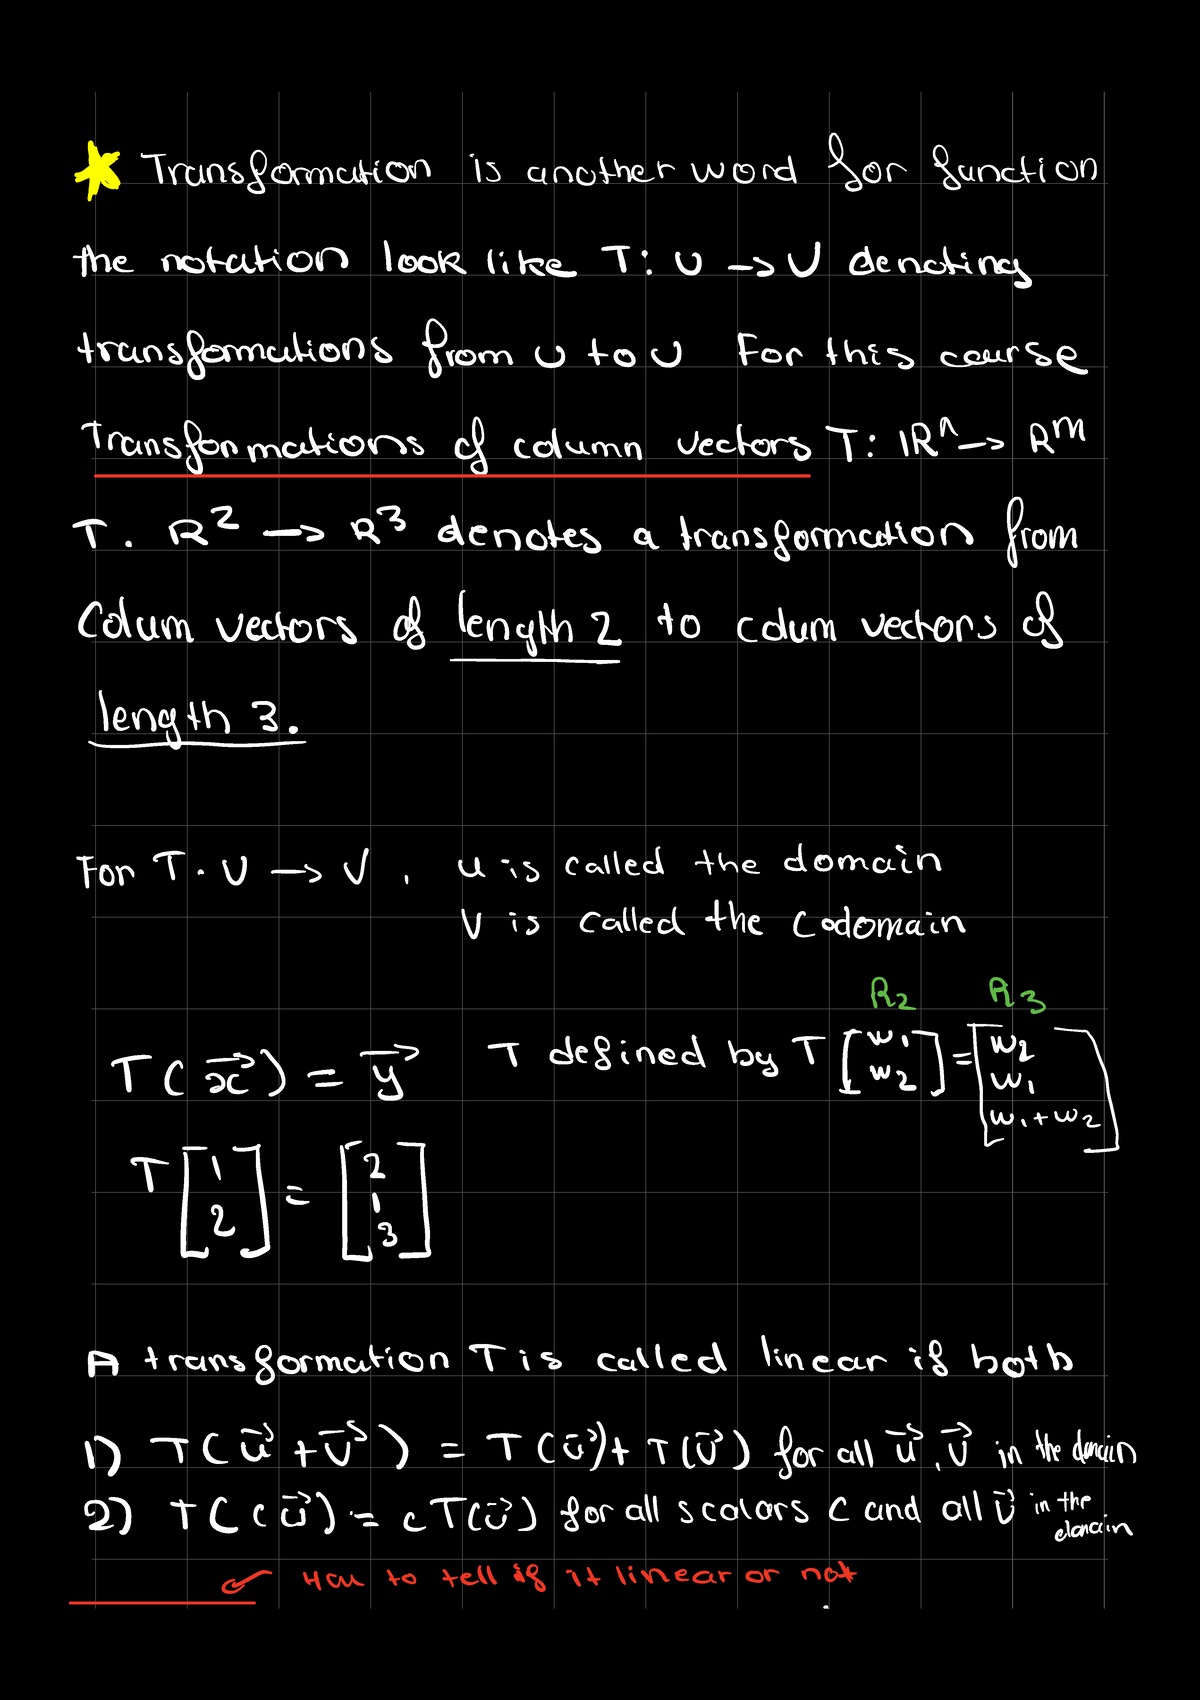 Transformation is another word for function
the notation look like T: U → V denoting
transformations from U to U For this course
Transformations of column vectors T: ℝⁿ → Rᵐ
T. R² → R³ denotes a transformation from
Colum vectors of length 2 to colum vectors of
length 3.
For T. U → V, u is called the domain
V is called the codomain
R₂ R₃
T(x⃗) = y⃗ T defined by T [w₁ w₂] = [w₂ w₁ w₁+w₂]
T [1 2] = [2 1 3]
A transformation T is called linear if both
1) T(u⃗ + v⃗) = T(u⃗) + T(v⃗) for all u⃗, v⃗ in the domain
2) T(cu⃗) = cT(u⃗) for all scalars C and all u⃗ in the domain
how to tell if it linear or not